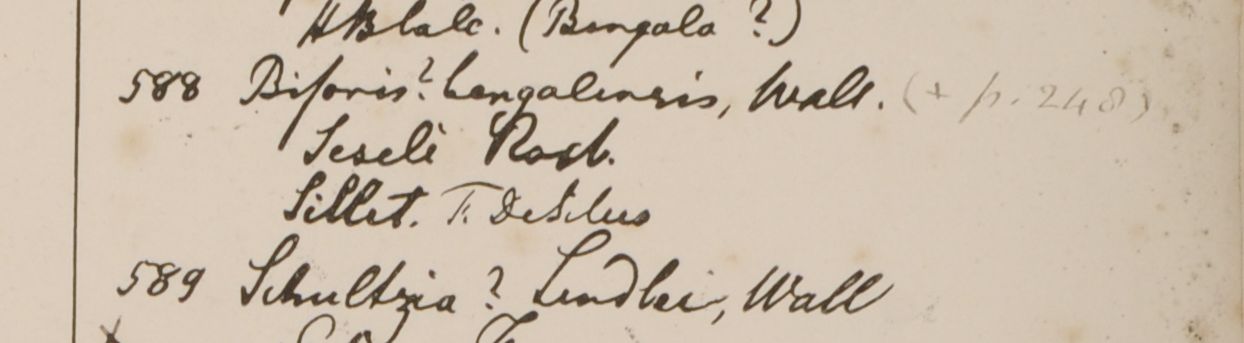 HBlalc. (Bengala ?)
588 Biforis? bengalensis, Wall. (+ p. 248)
Seseli Roxb.
Sillet. F. DeSilus
589 Schultzia? Lindlei, Wall